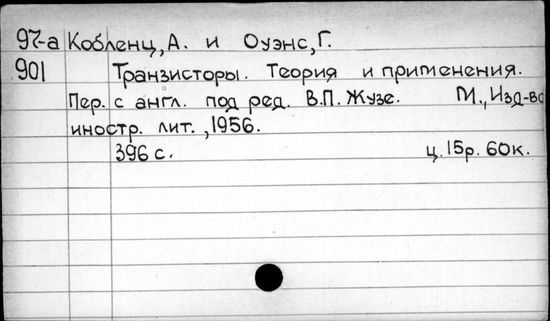 97-а Кобленц, А. и Оуэнс, Г.
901 Транзисторы. Теория и применения.
Пер. с англ. под ред. В.П. Жузе. М., Изд-во
иностр. лит., 1956.
396 с. ц. 15р. 60к.